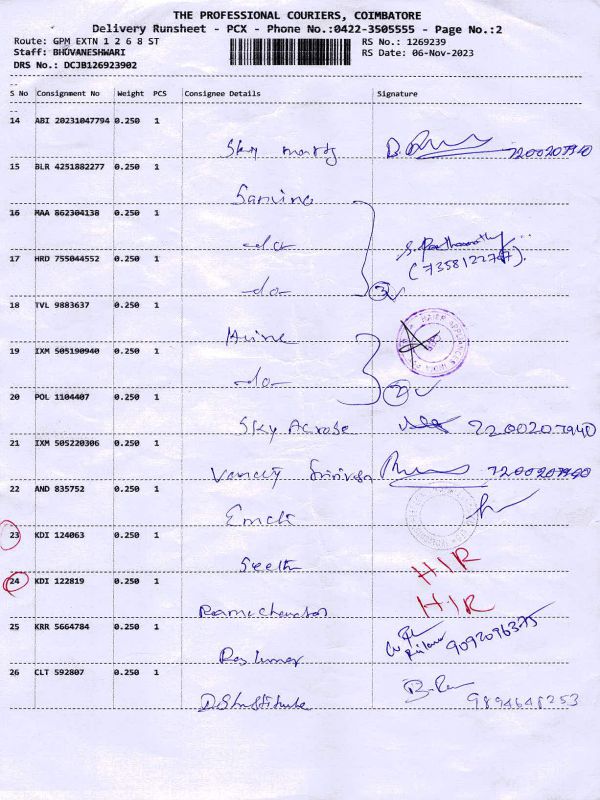 THE PROFESSIONAL COURIERS, COIMBATORE
Delivery Runsheet - PCX - Phone No.:0422-3505555 - Page No.:2
Route: GPM EXTN 1 2 6 8 ST RS No.: 1269239
Staff: BHUVANESHWARI RS Date: 06-Nov-2023
DRS No.: DCJB126923902
S No Consignment No Weight PCS Consignee Details Signature
14 ABI 20231047794 0.250 1
Sky 7200207940
15 BLR 4251882277 0.250 1
16 MAA 862304138 0.250 1
-do-
17 HRD 755044552 0.250 1 (7358122747).
-do- 3
18 TVL 9883637 0.250 1
19 IXM 505190940 0.250 1
-do- 2
20 POL 1104407 0.250 1
Sky 7200207940
21 IXM 505220306 0.250 1
7200207940
22 AND 835752 0.250 1
23 KDI 124063 0.250 1
HIR
24 KDI 122819 0.250 1
Ramachandran HIR
25 KRR 5664784 0.250 1
9092096375
26 CLT 592807 0.250 1
9894648253